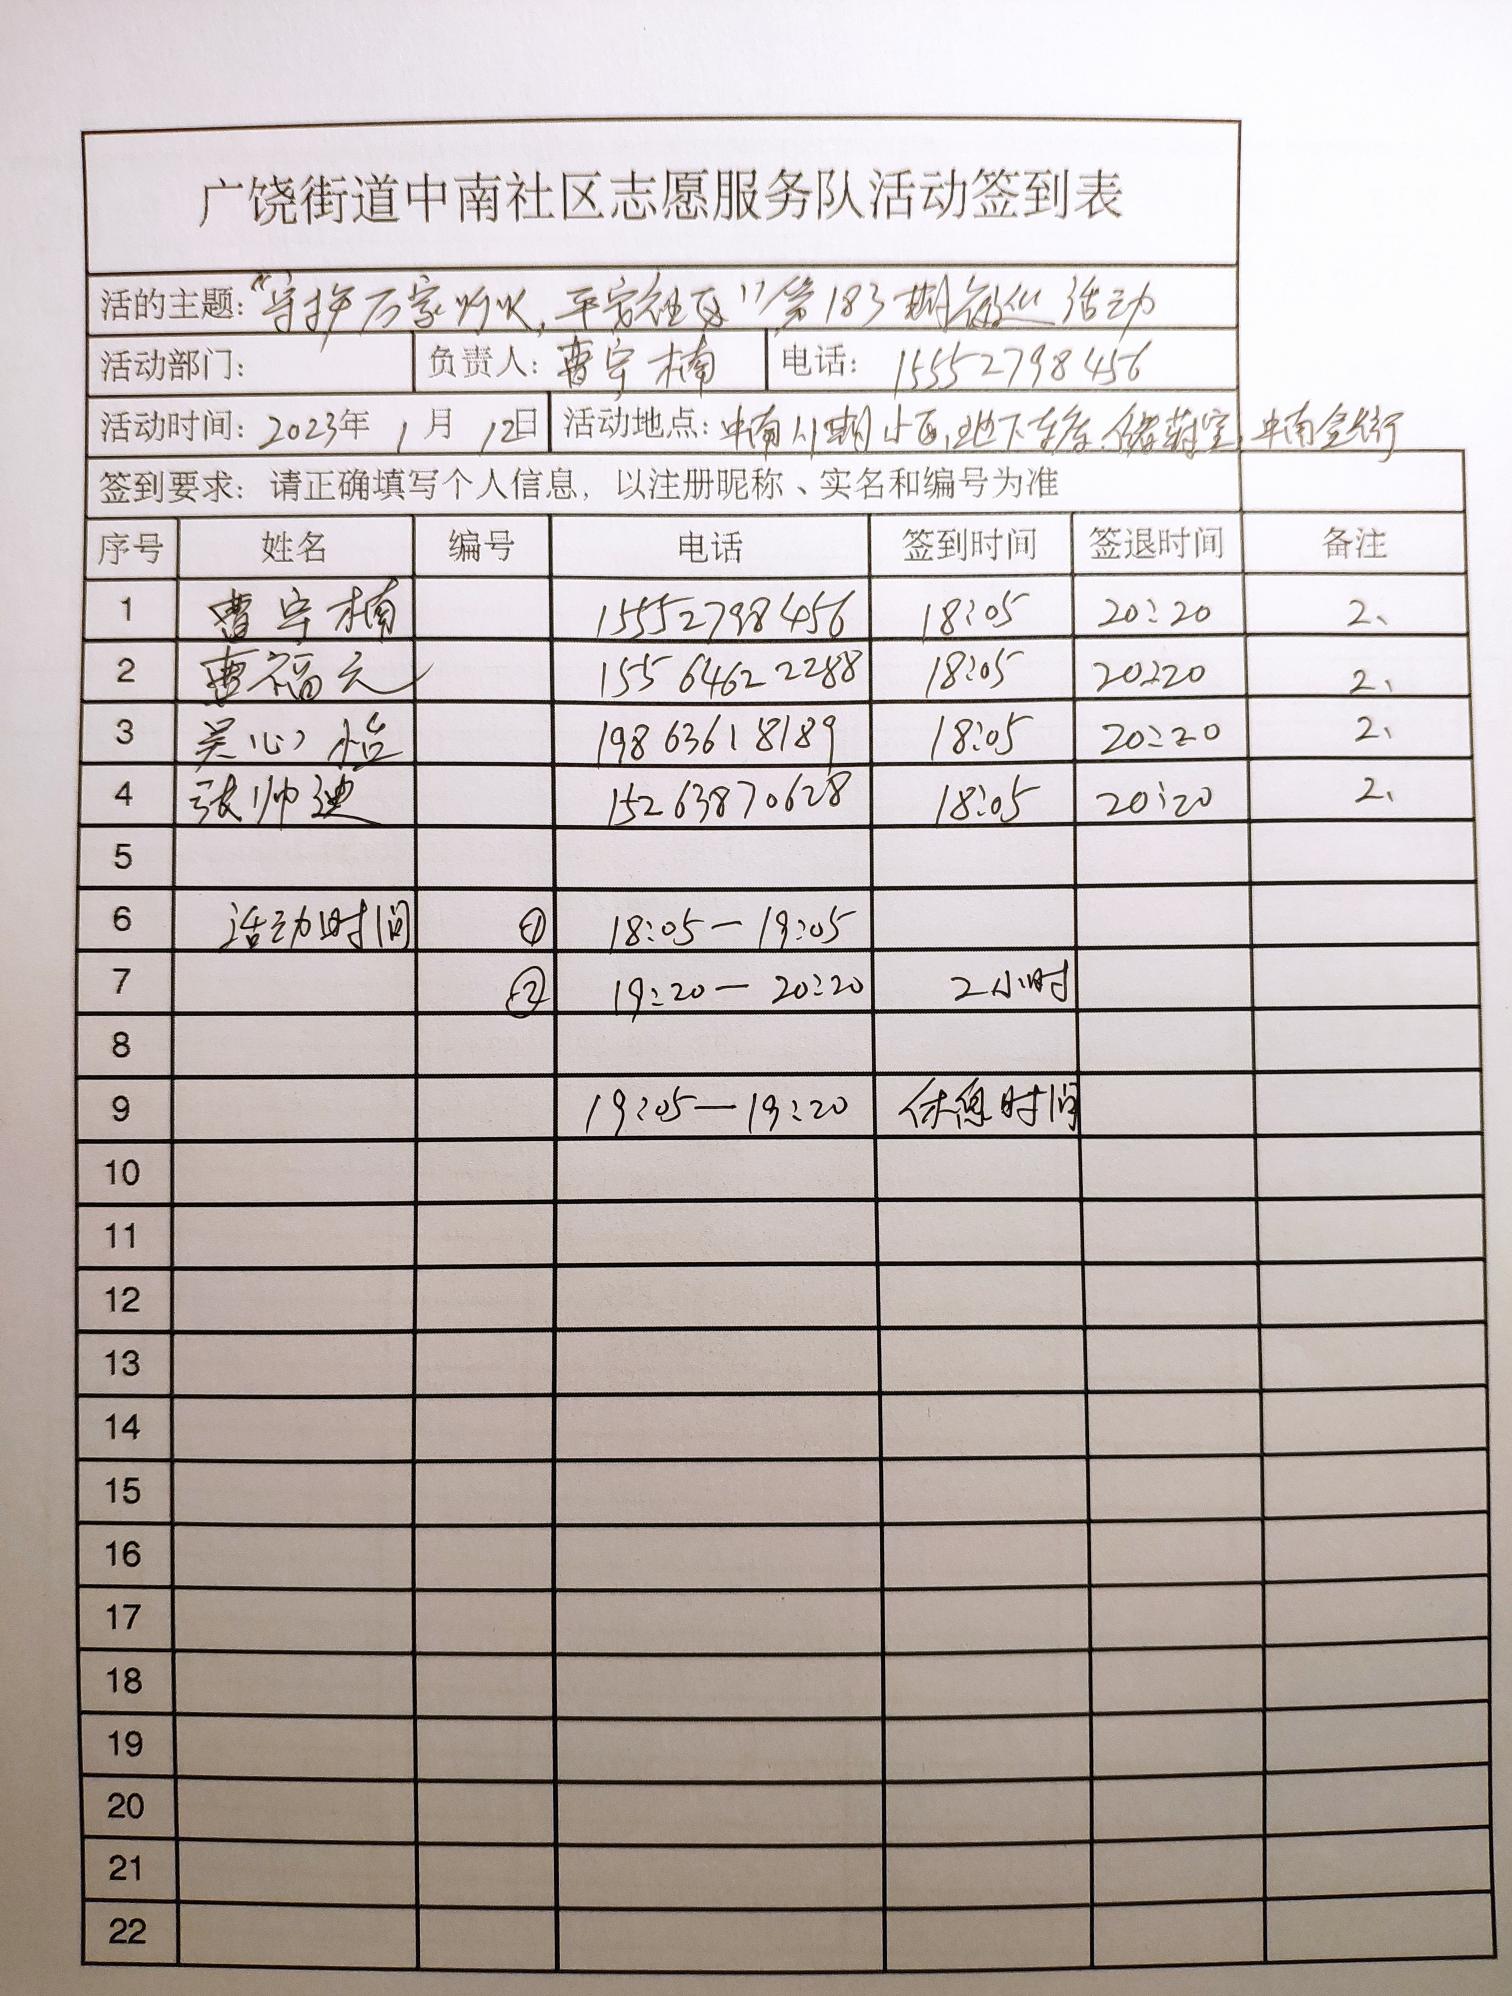 广饶街道中南社区志愿服务队活动签到表
活的主题：“守护万家灯火，平安社区”第183期夜巡活动
活动部门： 负责人：曹宇楠 电话：15552798456
活动时间：2023年 1月 12日 活动地点：中南小区，地下车库、储藏室，中南金街
签到要求：请正确填写个人信息，以注册昵称、实名和编号为准
序号 姓名 编号 电话 签到时间 签退时间 备注
1 曹宇楠 15552798456 18:05 20:20 2、
2 曹福元 15564622288 18:05 20:20 2、
3 吴心怡 19863618189 18:05 20:20 2、
4 张帅迪 15263870628 18:05 20:20 2、
5
6 活动时间 ① 18:05—19:05
7 ② 19:20—20:20 2小时
8
9 19:05—19:20 休息时间
10
11
12
13
14
15
16
17
18
19
20
21
22